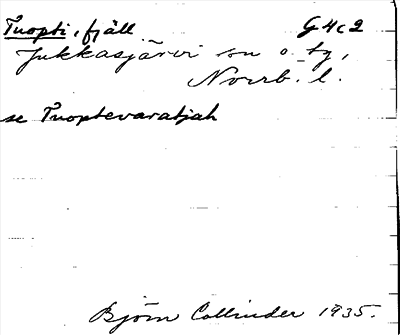 Tuopti, fjäll G4c2
Jukkasjärvi sn o. tg,
Norrb. l.
se Tuoptevaratjah
Björn Collinder 1935.